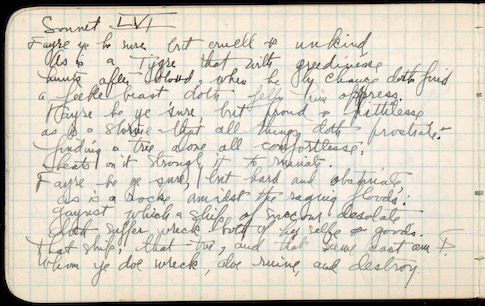 Sonnet LVI
Fayre ye be sure, but cruell & unkind
As is a Tygre that with greedinesse
hunts after bloud, when he by chance doth find
a feeble beast doth felly him oppress.
Fayre be ye sure, but proud & pittilesse
as is a storme that all things doth prostrate:
finding a tree alone all comfortlesse,
beats on it strongly it to ruinate.
Fayre be ye sure, but hard and obstinate,
as is a rock amidst the raging floods:
gaynst which a ship of succour desolate
doth suffer wreck both of her selfe & goods.
That ship, that tree, and that same beast am I,
Whom ye doe wreck, doe ruine, and destroy